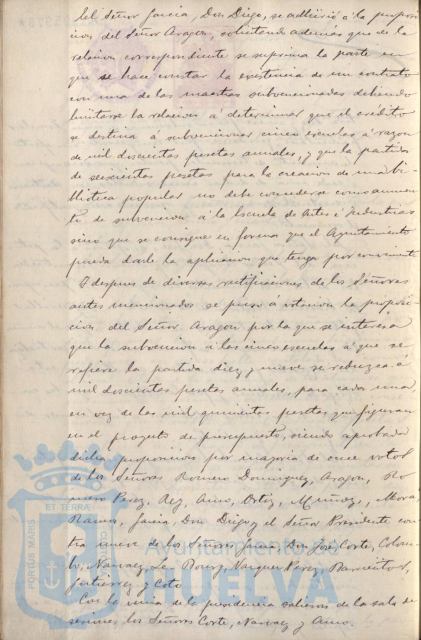 El Señor García, Don Diego, se adhirió á la proposi-
cion del Señor Aragon, solicitando ademas que de la
relacion correspondiente se suprima la parte en
que se hace constar la existencia de un contrato
con una de las maestras subvencionadas debiendo
limitarse la relacion á determinar que el credito
se destina á subvencionar cinco escuelas á razon
de mil doscientas pesetas anuales, y que la partida
de seiscientas pesetas para la creacion de una bi-
blioteca popular no debe consederse como aumen-
to de subvencion á la Escuela de Artes é Industrias
sino que se consigne en forma que el Ayuntamiento
pueda darle la aplicacion que tenga por conveniente
Y despues de diversas rectificaciones de los Señores
antes mencionados se puso á votacion la proposi-
cion del Señor Aragon por la que se interesa
que la subvencion á las cinco escuelas á que se
refiere la partida diez y nueve se reduzca á
mil doscientas pesetas anuales, para cada una
en vez de las mil quinientas pesetas que figuran
en el proyecto de presupuesto, siendo aprobada
dicha proposicion por mayoria de once votos
de los Señores Romero Dominguez, Aragon, Ro-
mero Perez, Rey, Amo, Ortiz, Muñoz, Mora,
Ramos, García, Don Diego y el Señor Presidente con-
tra nueve de los Señores García, Don José, Corte, Colom-
bo, Narvaez, Vazquez Perez,
Gutierrez y Coto
Con la venia de la presidencia salieron de la sala de
sesiones los Señores Corte, Narvaez y Amo.
PORTUS MARIS
ET TERRAE
Ayuntamiento de
HUELVA